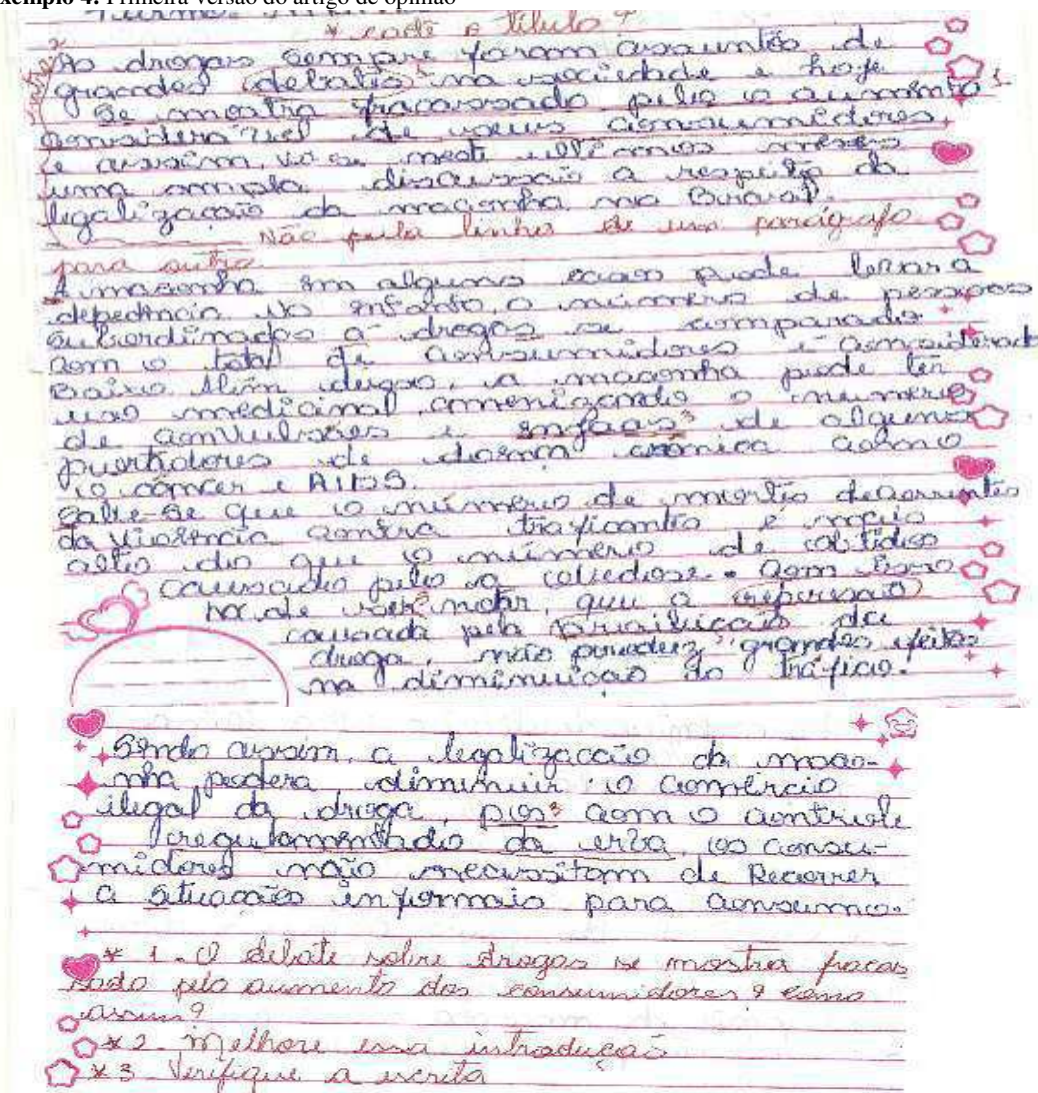 Exemplo 4: Primeira versão do artigo de opinião
* cadê o título?
As drogas sempre foram assuntos de
grandes debates na sociedade e hoje
se mostra fracassado pelo o aumento 1-
consideravel de seus consumidores,
e assim, vê se neste ultimos meses
uma ampla discussão a respeito da
legalização da maconha no Brasil.
Não pula linha de um parágrafo
para outro.
A maconha em alguns casos pode levar a
depedência no entanto, o número de pessoas
subordinados a drogas se comparado
com o total de consumidores é considerado
Baixo Além disso, a maconha pode ter
uso medicinal amenizando o numero
de convulsões e de alguns
portadores de doença crônica como
o câncer e AIDS.
Sabe-se que o número de mortes decorrentes
da violência contra traficantes é mais
alto do que o número de obtidos
causados pelo a overdose. Com isso
pode notar, que a repressão
causada pela da
droga, não produz grandes efeitos
na diminuição do tráfico.
Sendo assim, a legalização da maco-
nha podera diminuir o comércio
ilegal da droga, pois³ com o controle
regulamentado da erva, os consu-
midores não necessitam de Recorrer
a situações informais para consumo.
* 1 - O debate sobre drogas se mostra fracas
sado pelo aumento dos consumidores? Como
assim?
* 2 - Melhore essa introdução
* 3 - Verifique a escrita